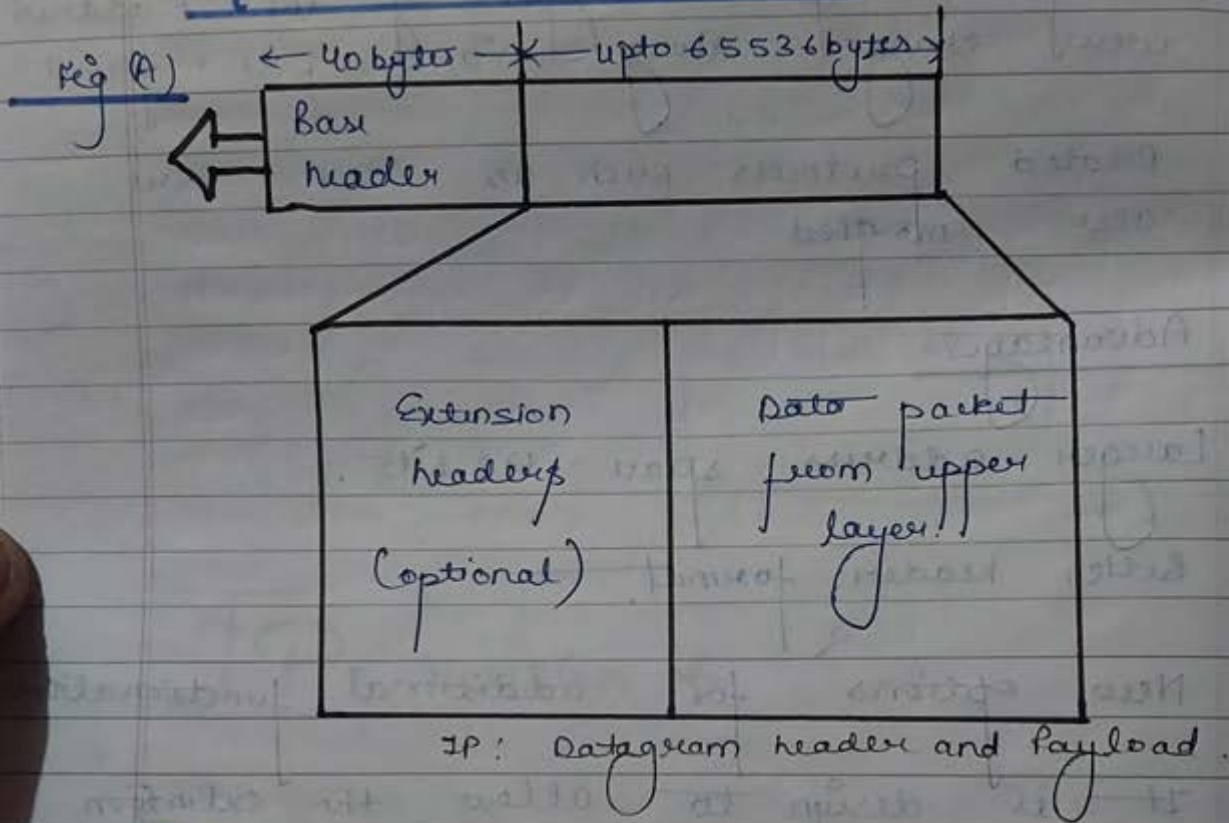 Fig (A)
← 40 bytes → ← upto 65536 bytes →
Base
header
Extension
headers
(optional)
Data packet
from upper
layer.
IP: Datagram header and Payload.